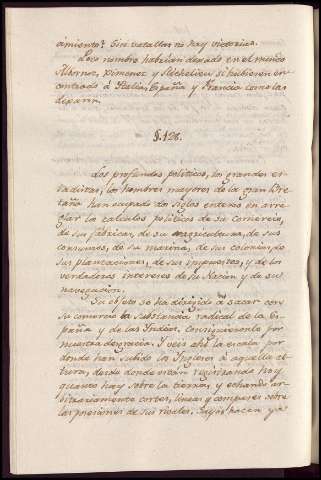 cimiento? Sin batallas no hay victorias.
Poco nombre habrian dexado en el mundo
Albornoz, Ximenez y Richelieu si hubieran en-
contrado á Italia, España y Francia como las
dexaron.
§. 128.
Los profundos politicos, los grandes es-
tadistas, los hombres mayores de la gran Bre-
taña han ocupado dos siglos enteros en arre-
glar los calculos politicos de su comercio,
de sus fabricas, de su agricultura, de sus
consumos, de su marina, de sus colonias, de
sus plantaciones, de sus impuestos, y de los
verdaderos intereses de su Nacion y de su
navegacion.
Su objeto se ha dirigido á sacar con
su comercio la substancia radical de la Es-
paña y de las Indias, consiguienlo por
nuestra desgracia. Y veis ahi la escala por
donde han subido los Ingleses á aquella al-
tura, desde donde estan registrando hoy
quanto hay sobre la tierra, y echando ar-
bitrariamente cortes, lineas y compases sobre
las posesiones de sus rivales. Ellos hacen ya